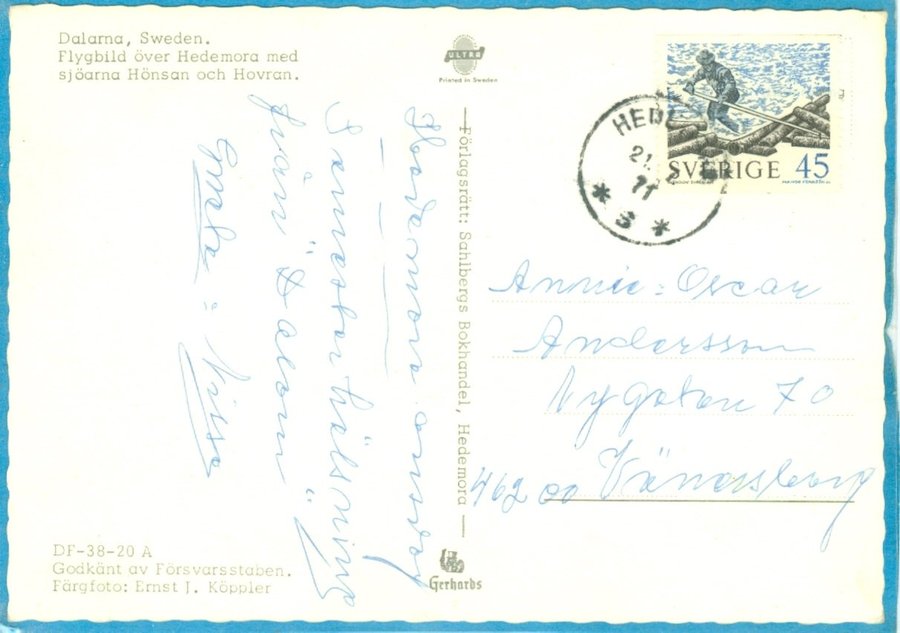 Dalarna, Sweden.
Flygbild över Hedemora med
sjöarna Hönsan och Hovran.
ULTRA
Printed in Sweden
Hedemora onsdag
Semesterhälsning
från "Dalom"
Greta : Nisse
DF-38-20 A
Godkänt av Försvarsstaben.
Färgfoto: Ernst J. Köppler
Förlagsrätt: Sahlbergs Bokhandel, Hedemora
Gerhards
SVERIGE 45
HEDE
21.
71
* 3 *
Annie : Oscar
Andersson
Nygatan 70
462 00 Vänersborg